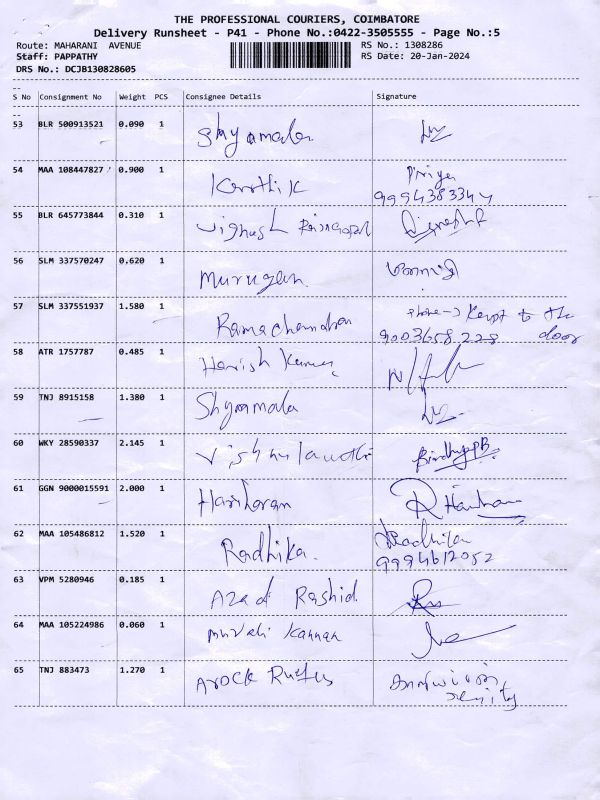 THE PROFESSIONAL COURIERS, COIMBATORE
Delivery Runsheet - P41 - Phone No.:0422-3505555 - Page No.:5
Route: MAHARANI AVENUE RS No.: 1308286
Staff: PAPPATHY RS Date: 20-Jan-2024
DRS No.: DCJB130828605
S No Consignment No Weight PCS Consignee Details Signature
53 BLR 500913521 0.090 1 Shyamala
54 MAA 108447827 0.900 1 Karthik Priya
9994383344
55 BLR 645773844 0.310 1 Vighnesh
56 SLM 337570247 0.620 1 Murugan
57 SLM 337551937 1.580 1 Ramachandra phone-> Kept to the
9003658228 door
58 ATR 1757787 0.485 1 Harish Kumar
59 TNJ 8915158 1.380 1 Shyamala
60 WKY 28590337 2.145 1
61 GGN 9000015591 2.000 1 Hariharan
62 MAA 105486812 1.520 1 Radhika. Radhika
9994612052
63 VPM 5280946 0.185 1 Azad Rashid
64 MAA 105224986 0.060 1 Murali Kannan
65 TNJ 883473 1.270 1 Arock Rufus